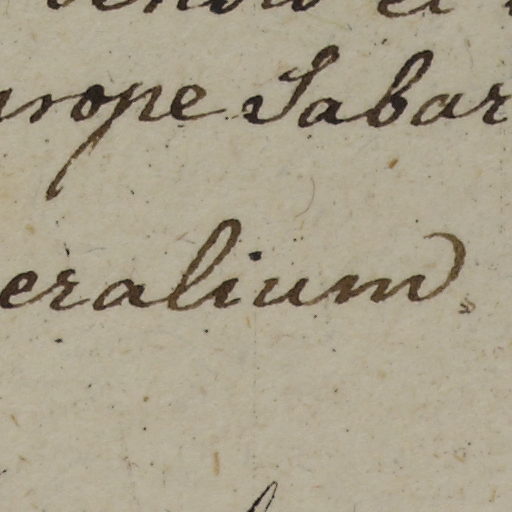 urope Sabar
eralium